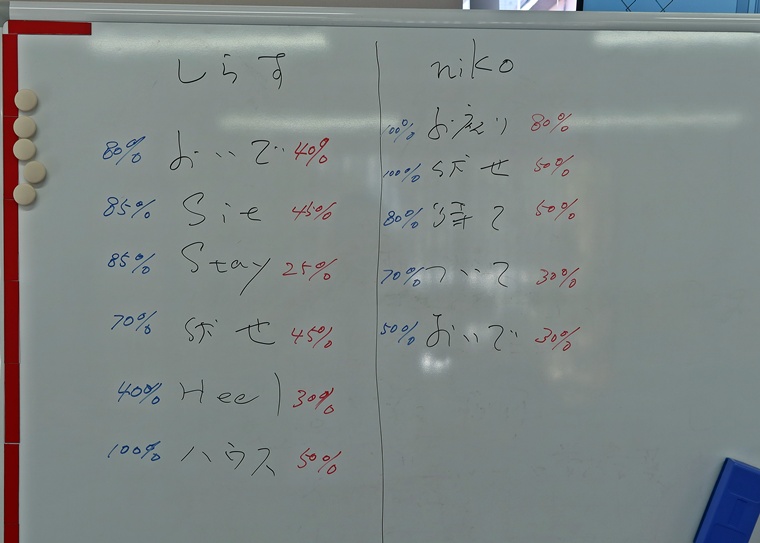 しらす
80% おいで 40%
85% Sit 45%
85% Stay 25%
70% ふせ 45%
40% Heel 30%
100% ハウス 50%
niko
100% お座り 80%
100% ふせ 50%
80% 待て 50%
70% ついて 30%
50% おいで 30%